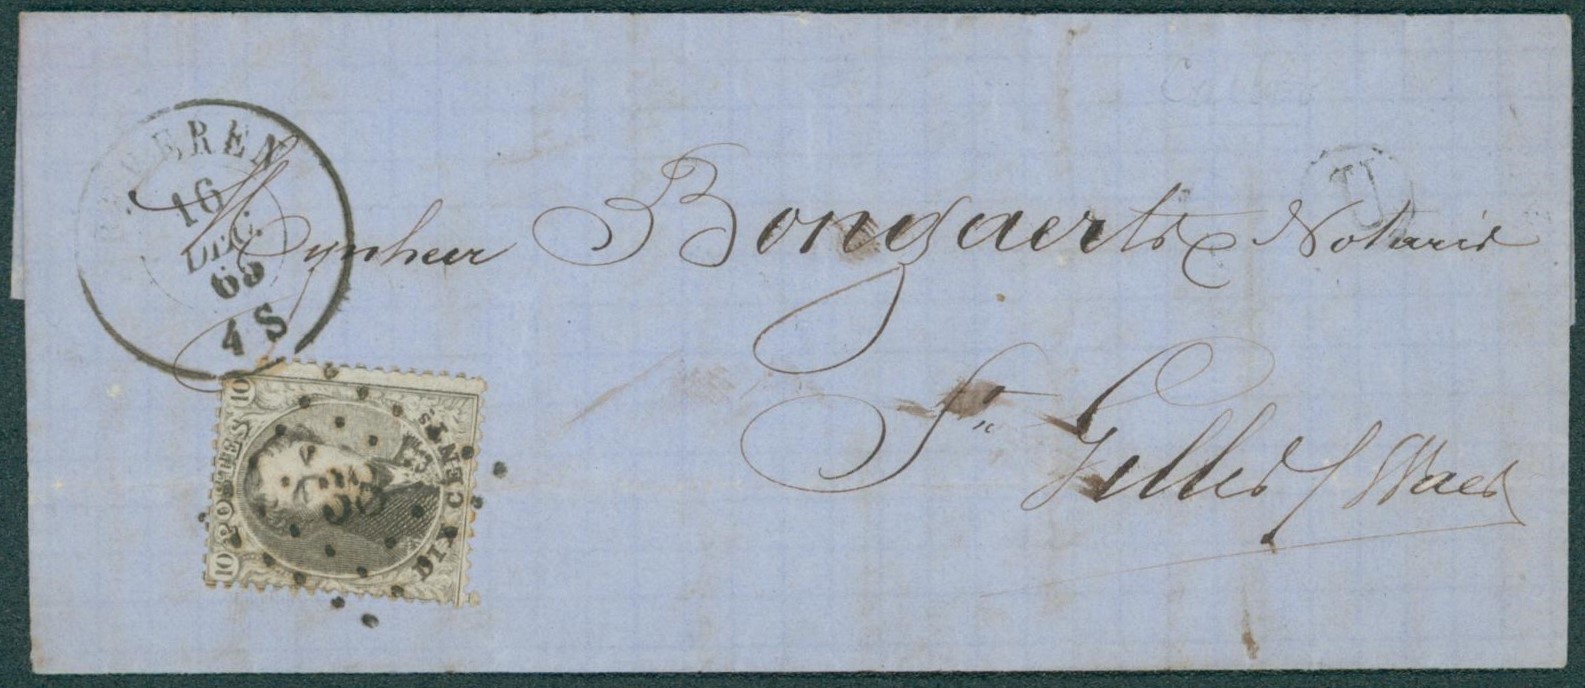 BEVEREN
16
DEC.
4 S
U
Mynheer Bongaerts Notaris
St. Gilles / Waes
10 POSTES 10
DIX CENTS.